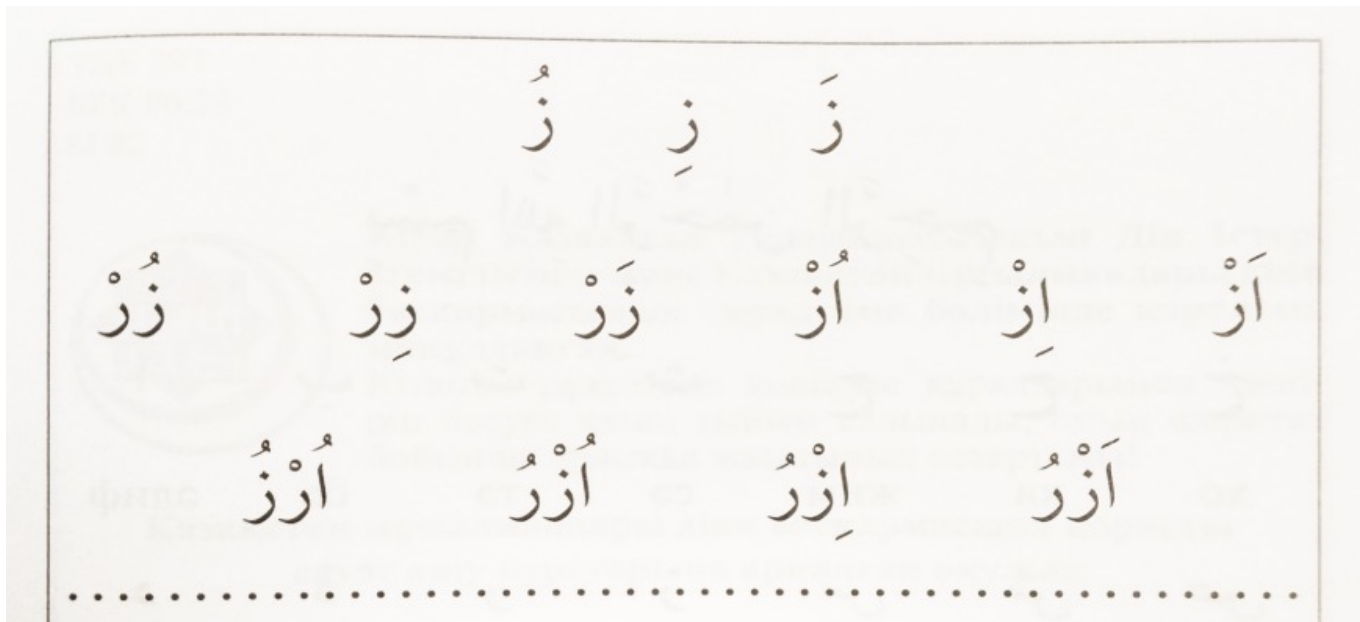 زَ زِ زُ
اَزْ اِزْ اُزْ زَرْ زِرْ زُرْ
اَزْرُ اِزْرُ اُزْرُ اُرْزُ